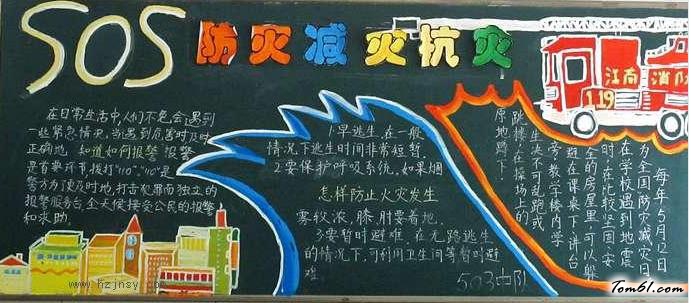 SOS
防灾减灾抗灾
江南消防
119
在日常生活中人们不免会遇到
一些紧急情况,当遇到厄害时及时
正确地,知道如何报警,报警
是首要环节,拨打"110","110"是
警方为了及时地,打击犯罪而独立的
报警服务台,全天候接受公民的报警
和求助。
1.早逃生,在一般
情况下逃生时间非常短暂
2.要保护呼吸系统,如果烟
怎样防止火灾发生
雾较浓,膝肘要着地.
3.要暂时避难,在无路逃生
的情况下,可利用卫生间等暂时避
难
503中队
每年5月12日
为全国防灾减灾日
在学校遇到地震
时,在比较坚固,安
全的房屋里,可以躲
避在课桌下,讲台
旁,教学楼内学
生决不可乱跑或
跳楼,在操场上的
原地蹲下.
www.hzjnsy.cn
图老师
Tom61.com